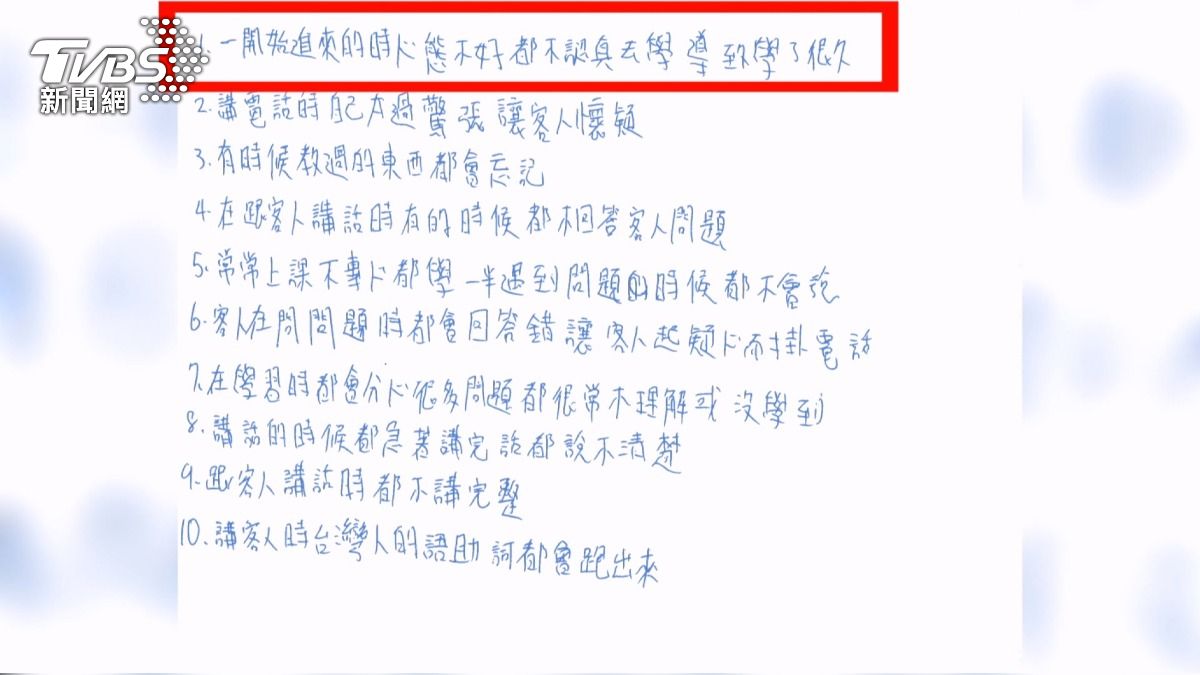 TVBS
新聞網
1. 一開始進來的時心態不好都不認真去學 導致學了很久
2. 講電話時自己太過驚張讓客人懷疑
3. 有時候教過的東西都會忘記
4. 在跟客人講話時有的時候都不回答客人問題
5. 常常上課不專心都學一半遇到問題的時候都不會說
6. 客人在問問題時都會回答錯讓客人起疑心而掛電話
7. 在學習時都會分心很多問題都很常不理解或沒學到
8. 講話的時候都急著講完話都說不清楚
9. 跟客人講話時都不講完整
10. 講客人時台灣人的語助詞都會跑出來